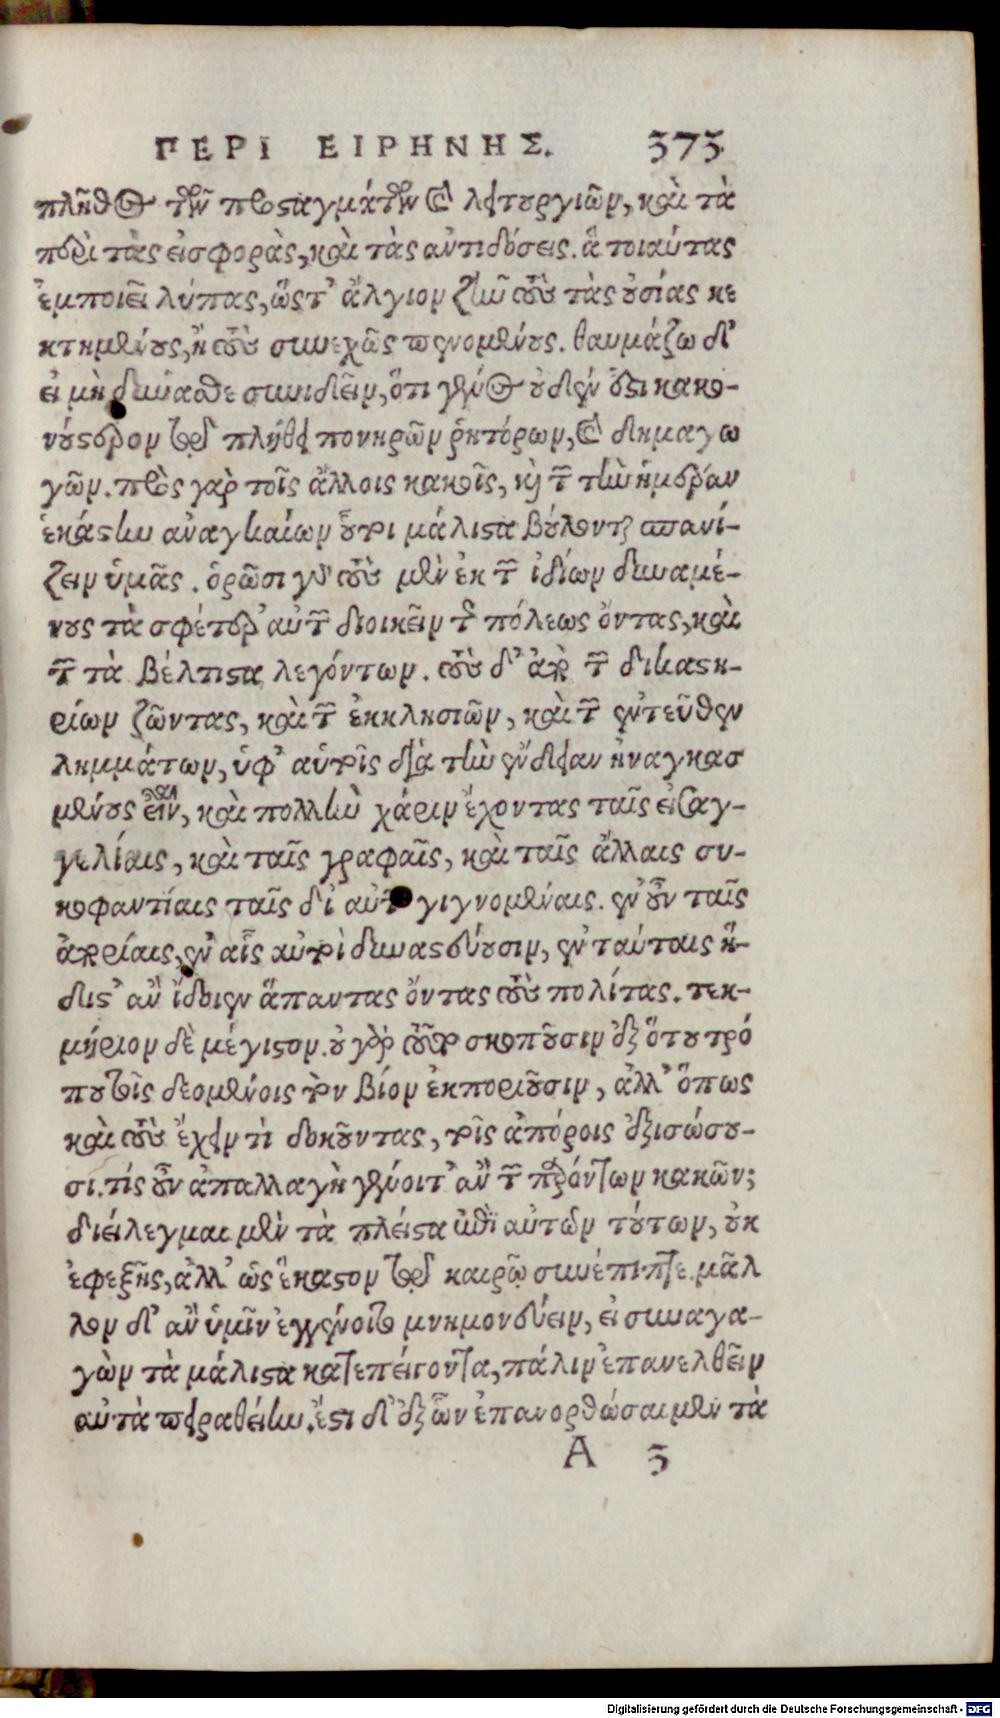 ΠΕΡΙ ΕΙΡΗΝΗΣ. 373
πλῆθος τῶν προσταγμάτων καὶ λειτουργιῶν, καὶ τὰ
περὶ τὰς εἰσφορὰς, καὶ τὰς ἀντιδόσεις. ἃ τοιαύτας
ἐμποιεῖ λύπας, ὥστ' ἄλγιον ζῆν τοὺς τὰς οὐσίας κε
κτημένους, ἢ τοὺς συνεχῶς πενομένους. θαυμάζω δ'
εἰ μὴ δύνασθε συνιδεῖν, ὅτι γένος οὐδέν ἐστι κακο-
νούστερον τῷ πλήθει πονηρῶν ῥητόρων, καὶ δημαγω
γῶν. πρὸς γὰρ τοῖς ἄλλοις κακοῖς, καὶ τῶν τὴν ἡμέραν
ἑκάστην ἀναγκαίων οὗτοι μάλιστα βούλονται σπανί-
ζειν ὑμᾶς. ὁρῶσι γὰρ τοὺς μὲν ἐκ τῶν ἰδίων δυναμέ-
νους τὰ σφέτερ' αὐτῶν διοικεῖν τῆς πόλεως ὄντας, καὶ
τῶν τὰ βέλτιστα λεγόντων. τοὺς δ' ἀπὸ τῶν δικαστη-
ρίων ζῶντας, καὶ τῶν ἐκκλησιῶν, καὶ τῶν ἐντεῦθεν
λημμάτων, ὑφ' αὑτοῖς διὰ τὴν ἔνδειαν ἠναγκασ
μένους εἶναι, καὶ πολλὴν χάριν ἔχοντας ταῖς εἰσαγ-
γελίαις, καὶ ταῖς γραφαῖς, καὶ ταῖς ἄλλαις συ-
κοφαντίαις ταῖς δι' αὐτῶν γιγνομέναις. ἐν οὖν ταῖς
ἀπορίαις, ἐν αἷς αὐτοὶ δυναστεύουσιν, ἐν ταύταις ἥ-
διστ' ἂν ἴδοιεν ἅπαντας ὄντας τοὺς πολίτας. τεκ-
μήριον δὲ μέγιστον. οὐ γὰρ τοῦτο σκοποῦσιν ἐξ ὅτου τρό
που τοῖς δεομένοις τὸν βίον ἐκποριοῦσιν, ἀλλ' ὅπως
καὶ τοὺς ἔχειν τὶ δοκοῦντας, τοῖς ἀπόροις ἐξισώσου-
σι. τίς οὖν ἀπαλλαγὴ γένοιτ' ἂν τῶν παρόντων κακῶν;
διείλεγμαι μὲν τὰ πλεῖστα περὶ αὐτῶν τούτων, οὐκ
ἐφεξῆς, ἀλλ' ὡς ἕκαστον τῷ καιρῷ συνέπιπτε. μᾶλ
λον δ' ἂν ὑμῖν ἐγγένοιτο μνημονεύειν, εἰ συναγα-
γὼν τὰ μάλιστα κατεπείγοντα, πάλιν ἐπανελθεῖν
αὐτὰ πειραθείην. ἔστι δ' ἐξ ὧν ἐπανορθώσαιμεν τὰ
A 3
Digitalisierung gefördert durch die Deutsche Forschungsgemeinschaft - DFG